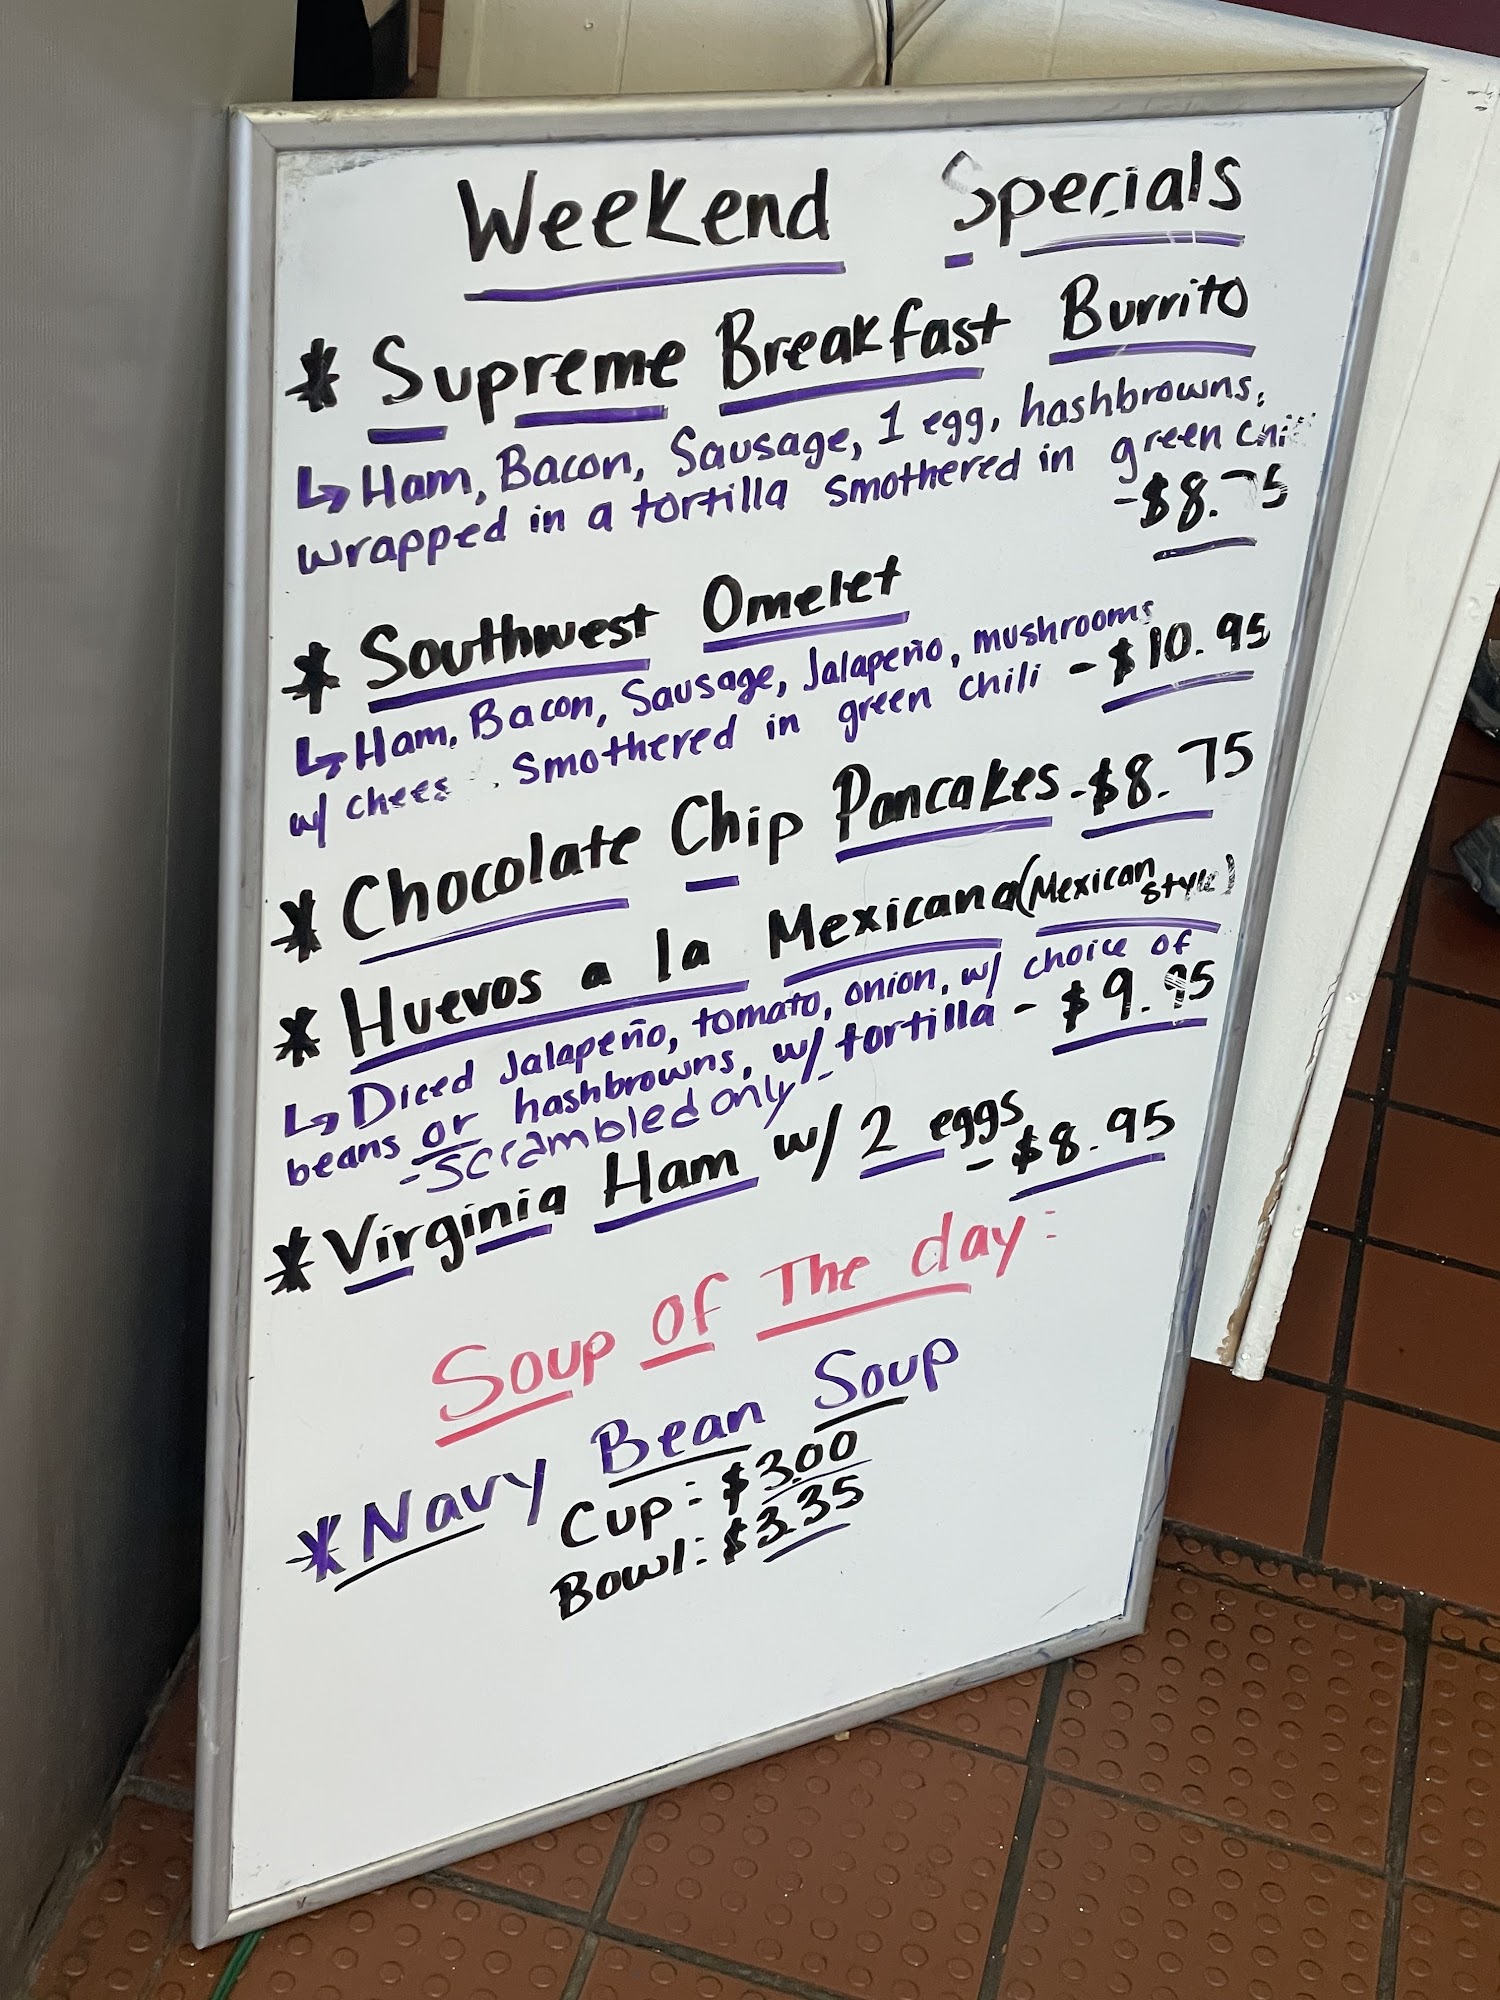 Weekend Specials
* Supreme Breakfast Burrito
↳ Ham, Bacon, Sausage, 1 egg, hashbrowns,
wrapped in a tortilla smothered in green chili
-$8.75
* Southwest Omelet
↳ Ham, Bacon, Sausage, Jalapeño, mushrooms
w/ chees smothered in green chili - $10.95
* Chocolate Chip Pancakes - $8.75
* Huevos a la Mexicana (Mexican style)
↳ Diced Jalapeño, tomato, onion, w/ choice of
beans or hashbrowns, w/ tortilla - $9.95
-scrambled only-
* Virginia Ham w/ 2 eggs - $8.95
Soup of The day:
* Navy Bean Soup
Cup: $3.00
Bowl: $3.35